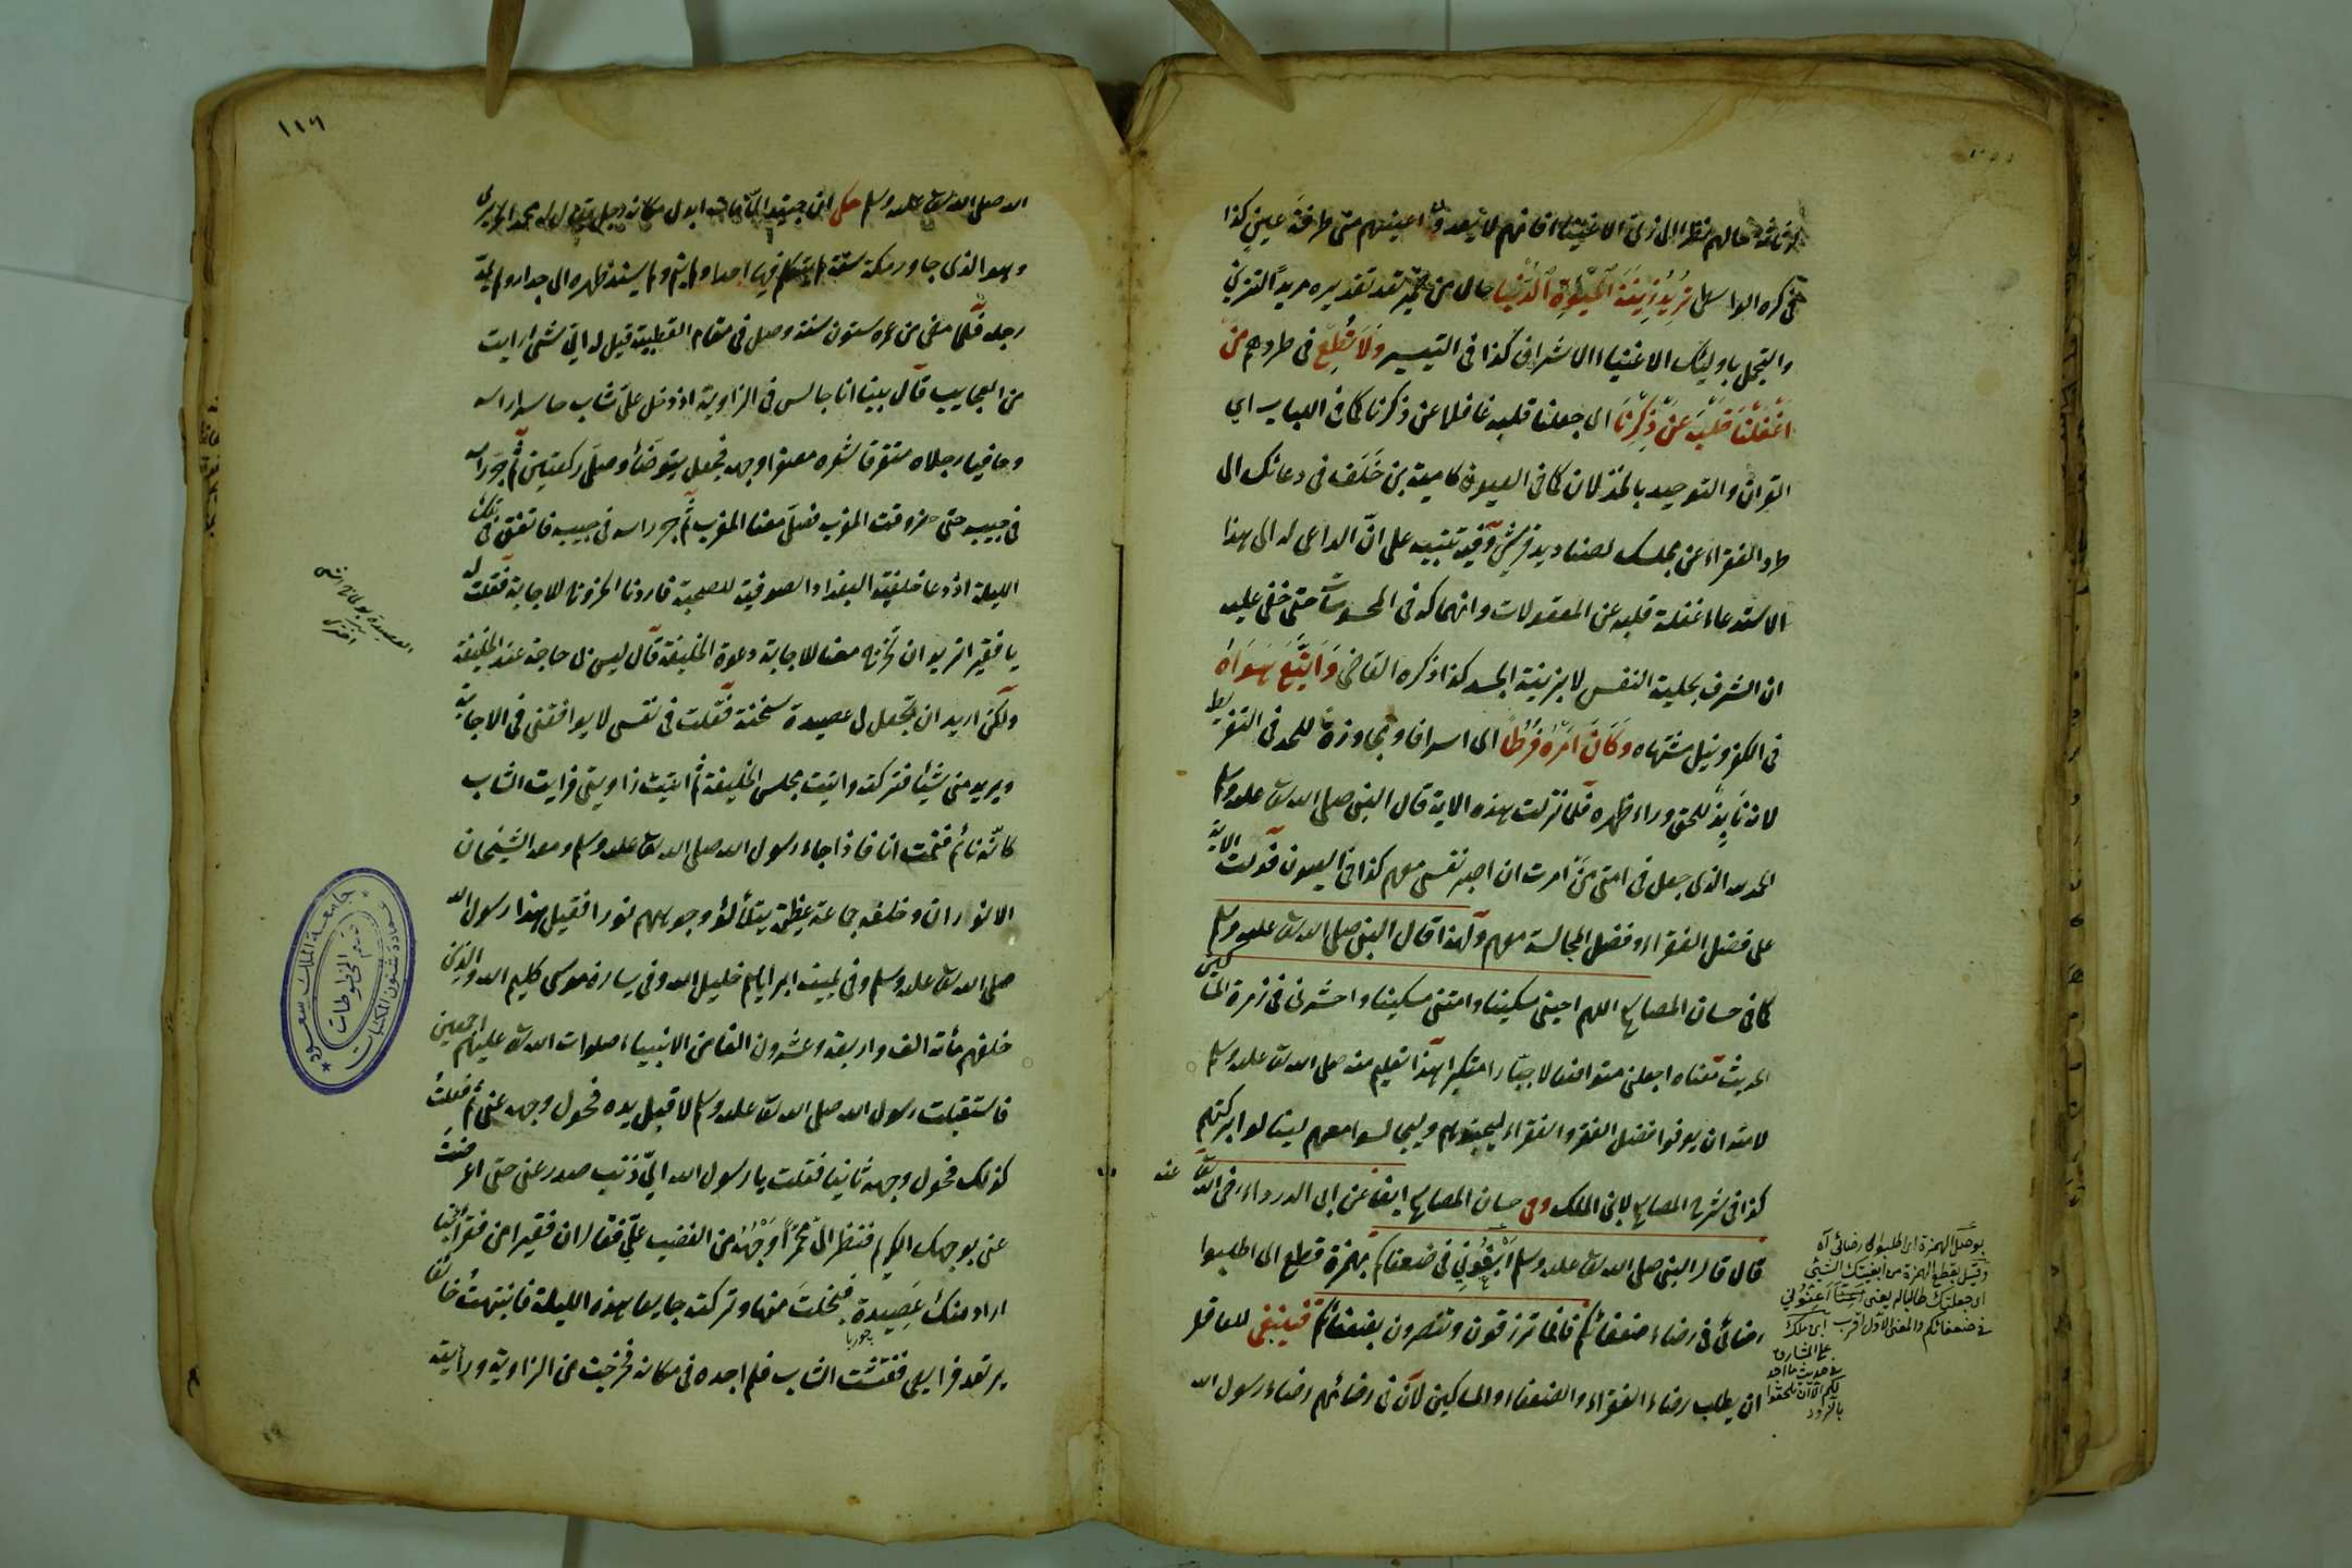 لرثاثة حالهم نظرا الى زى الاغنياء فانهم لا تبعد اعينهم متى طرفة عين كذا
ذكره الواسطى تريد زينة الحيوة الدنيا حال من تقديره مريدا لتزين
والتجمل باوليك الاغنياء الاشراف كذا فى التيسير ولا تطع فى طردهم من
اغفلنا قلبه عن ذكرنا اى جعلنا قلبه غافلا عن ذكرنا كما فى اللباب اى
القرآن والتوحيد بالخذلان كما فى العيون كامية بن خلف فى دعائك الى
طرد الفقراء عن مجلسك لصناديد قريش وفيه تنبيه على ان الداعى له الى هذا
الاستدعاء غفلة قلبه عن المعقولات وانهماكه فى المحسوسات حتى خفى عليه
ان الشرف بحلية النفس لا بزينة الجسد كذا ذكره القاضى واتبع هواه
فى الكفر ونيل مشتهاه وكان امره فرطا اى اسرافا ومجاوزة للحد فى التفريط
لانه نابذ للحق وراء ظهره فلما نزلت هذه الاية قال النبى صلى الله تعالى عليه وسلم
الحمد لله الذى جعل فى امتى من امرت ان اصبر نفسى معهم كذا فى العيون فدلت الاية
على فضل الفقراء وفضل المجالسة معهم ولهذا قال النبى صلى الله تعالى عليه وسلم
كما فى حسان المصابيح اللهم احينى مسكينا وامتنى مسكينا واحشرنى فى زمرة المساكين
الحديث معناه اجعلنى متواضعا لا جبارا متكبرا هذا تعليم منه صلى الله تعالى عليه وسلم
لامته ان يعرفوا فضل الفقر والفقراء ليحبوهم ويجالسوا معهم لينالوا بركتهم
كذا فى شرح المصابيح لابن الملك وفى حسان المصابيح ايضا عن ابى الدرداء رضى الله تعالى عنه
قال قال النبى صلى الله تعالى عليه وسلم ابغونى فى ضعفائكم بهمزة قطع اى اطلبوا
رضائى فى رضاء ضعفائكم فانما ترزقون وتنصرون بضعفائكم فينبغى للعاقل
ان يطلب رضاء الفقراء والضعفاء والمساكين لان فى رضائهم رضاء رسول الله
بوصل الهمزة اى اطلبوا لى رضائى اه
وقيل بقطع الهمزة من ابغيتك الشئ
اى جعلتك طالبا له يعنى اعينونى
فى ضعفائكم والمعنى الاول اقرب ابن ملك
على المشارق
فى حديث ما اجد
لكم الا ان تلحقوا
بالذود
١١٦
الله صلى الله تعالى عليه وسلم حكى ان جنيد لما مات ابدل مكانه رجل يقال له محمد الحريرى
وهو الذى جاور مكة سنة لم يتكلم فيها احدا ولم ينم ولم يسند ظهره الى جدار ولم يمد
رجله فلما مضى من عمره ستون سنة وصل فى مقام القطبية قيل له اى شئ رايت
من العجايب قال بينا انا جالس فى الزاوية اذ دخل على شاب حاسرا راسه
وحافيا رجلاه متفرقا شعره مصفرا وجهه فجعل يتوضأ وصلى ركعتين ثم جر راسه
فى جيبه حتى حضر وقت المغرب فصلى معنا المغرب ثم جر راسه فى جيبه فاتفق فى تلك
الليلة اذ دعا خليفة البغداد الصوفية للصحبة فاردنا الخروج للاجابة فقلت له
يا فقير اتريد ان تخرج معنا للاجابة دعوة الخليفة قال ليس لى حاجة عند الخليفة
ولكن اريد ان تجعل لى عصيدة سخنة فقلت فى نفسى لا يوافقنى فى الاجابة
ويريد منى شيئا فتركته واتيت مجلس الخليفة ثم اتيت زاويتى فرايت الشاب
كانه نائم فنمت انا فاذا جاء رسول الله صلى الله تعالى عليه وسلم ومعه الشيخان
الانوران وخلفه جماعة عظيمة يتلألؤ وجوههم نورا فقيل هذا رسول الله
صلى الله تعالى عليه وسلم وفى يمينه ابراهيم خليل الله وفى يساره موسى كليم الله والذين
خلفهم مأته الف واربعة وعشرون الفا من الانبياء صلوات الله تعالى عليهم اجمعين
فاستقبلت رسول الله صلى الله تعالى عليه وسلم لاقبل يده فحول وجهه عنى ثم فعلت
كذلك فحول وجهه ثانيا فقلت يا رسول الله اى ذنب صدر عنى حتى اعرضت
عنى بوجهك الكريم فنظر الى محمرا وجهه من الغضب على فقال ان فقيرا من فقرائنا
اراد منك عصيدة فبخلت منها وتركت جايعا هذه الليلة فانتبهت خائفا
يرتعد فرايصى ففتشت الشاب فلم اجده فى مكانه فخرجت من الزاوية ورأيته
جامعة الملك سعود
قسم المخطوطات
عمادة شئون المكتبات